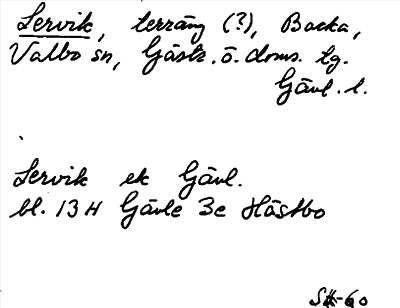 Lervik, terräng (?), Backa,
Valbo sn, Gästr. ö. doms. tg.
Gävl. l.
Lervik ek Gävl.
bl. 13 H Gävle 3c Hästbo